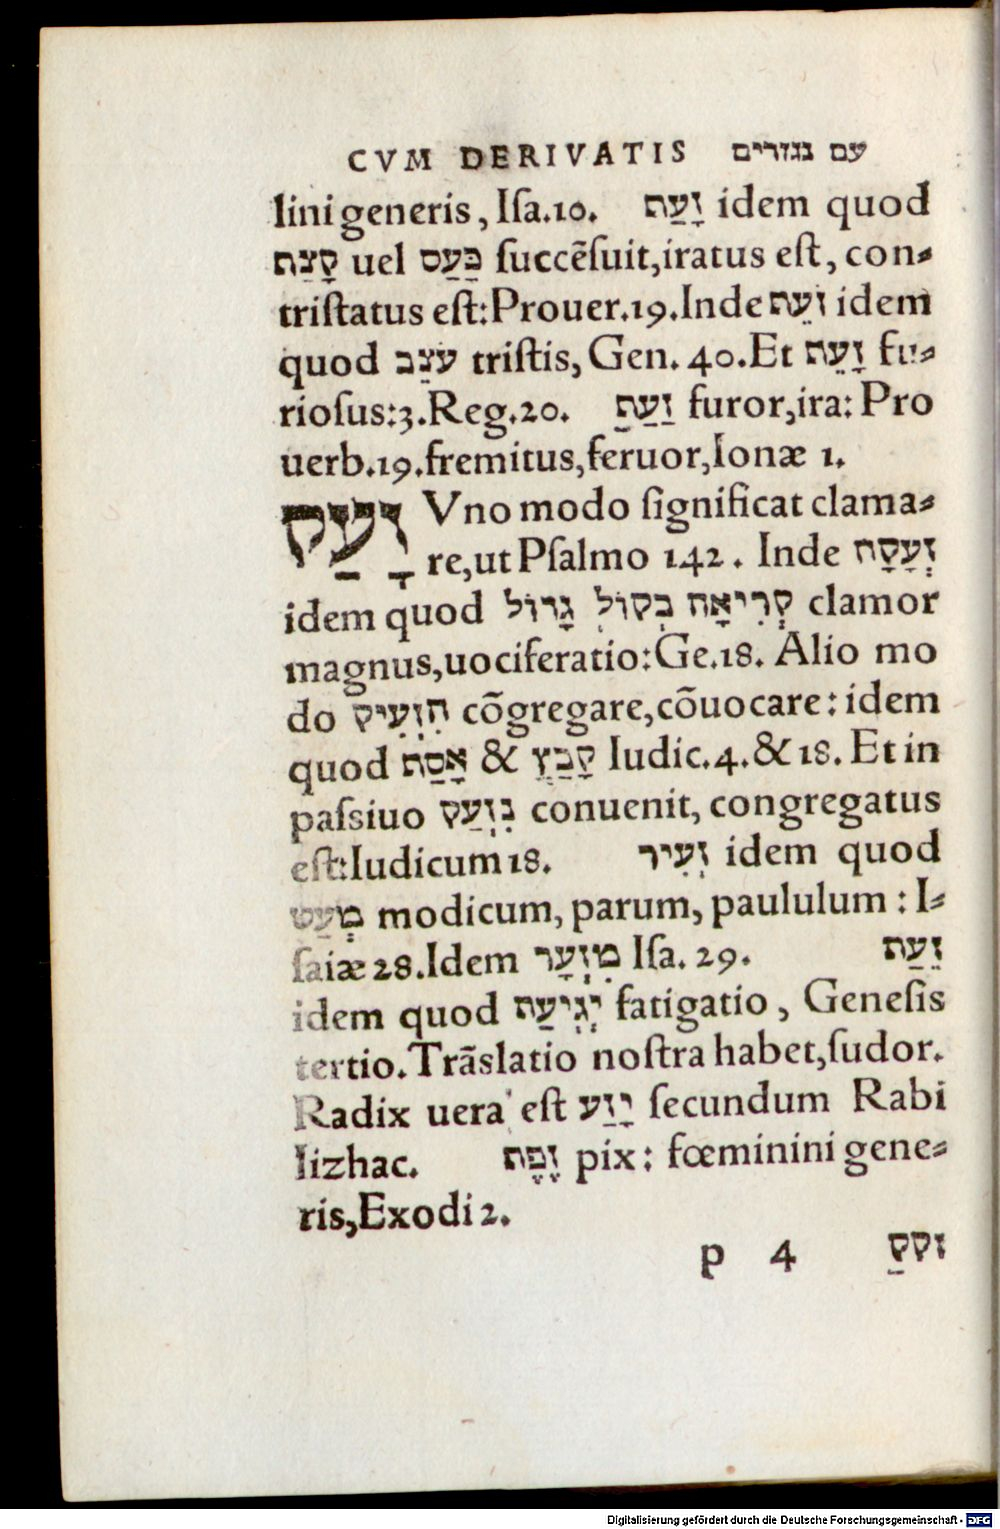 CVM DERIVATIS עם נגזרים
lini generis, Iſa.10. זָעַף idem quod
קָצַף uel כַּעַס succẽſuit,iratus eſt, con⸗
triſtatus eſt:Prouer.19.Inde זֹעֵף idem
quod עצֵב triſtis, Gen. 40.Et זָעֵף fu⸗
rioſus:3.Reg.20. זַעַף furor,ira: Pro
uerb.19.fremitus,feruor,Ionæ 1.
זָעַק Vno modo ſignificat clama⸗
re,ut Pſalmo 142. Inde זְעָקָה
idem quod קְרִיאָה בְּקוֹל גָּדוֹל clamor
magnus,uociferatio:Ge.18. Alio mo
do הִזְעִיק cõgregare,cõuocare: idem
quod אָסַף & קָבַץ Iudic.4.& 18. Et in
paſsiuo נִזְעַק conuenit, congregatus
eſt:Iudicum 18. זְעִיר idem quod
מְעַט modicum, parum, paululum : I⸗
ſaiæ 28.Idem מִזְעָר Iſa. 29. זֵעַת
idem quod יְגִיעַת fatigatio, Geneſis
tertio.Trãſlatio noſtra habet,ſudor.
Radix uera eſt יָזַע ſecundum Rabi
Iizhac. זֶפֶת pix: fœminini gene⸗
ris,Exodi 2.
p 4 זקק
Digitalisierung gefördert durch die Deutsche Forschungsgemeinschaft - DFG